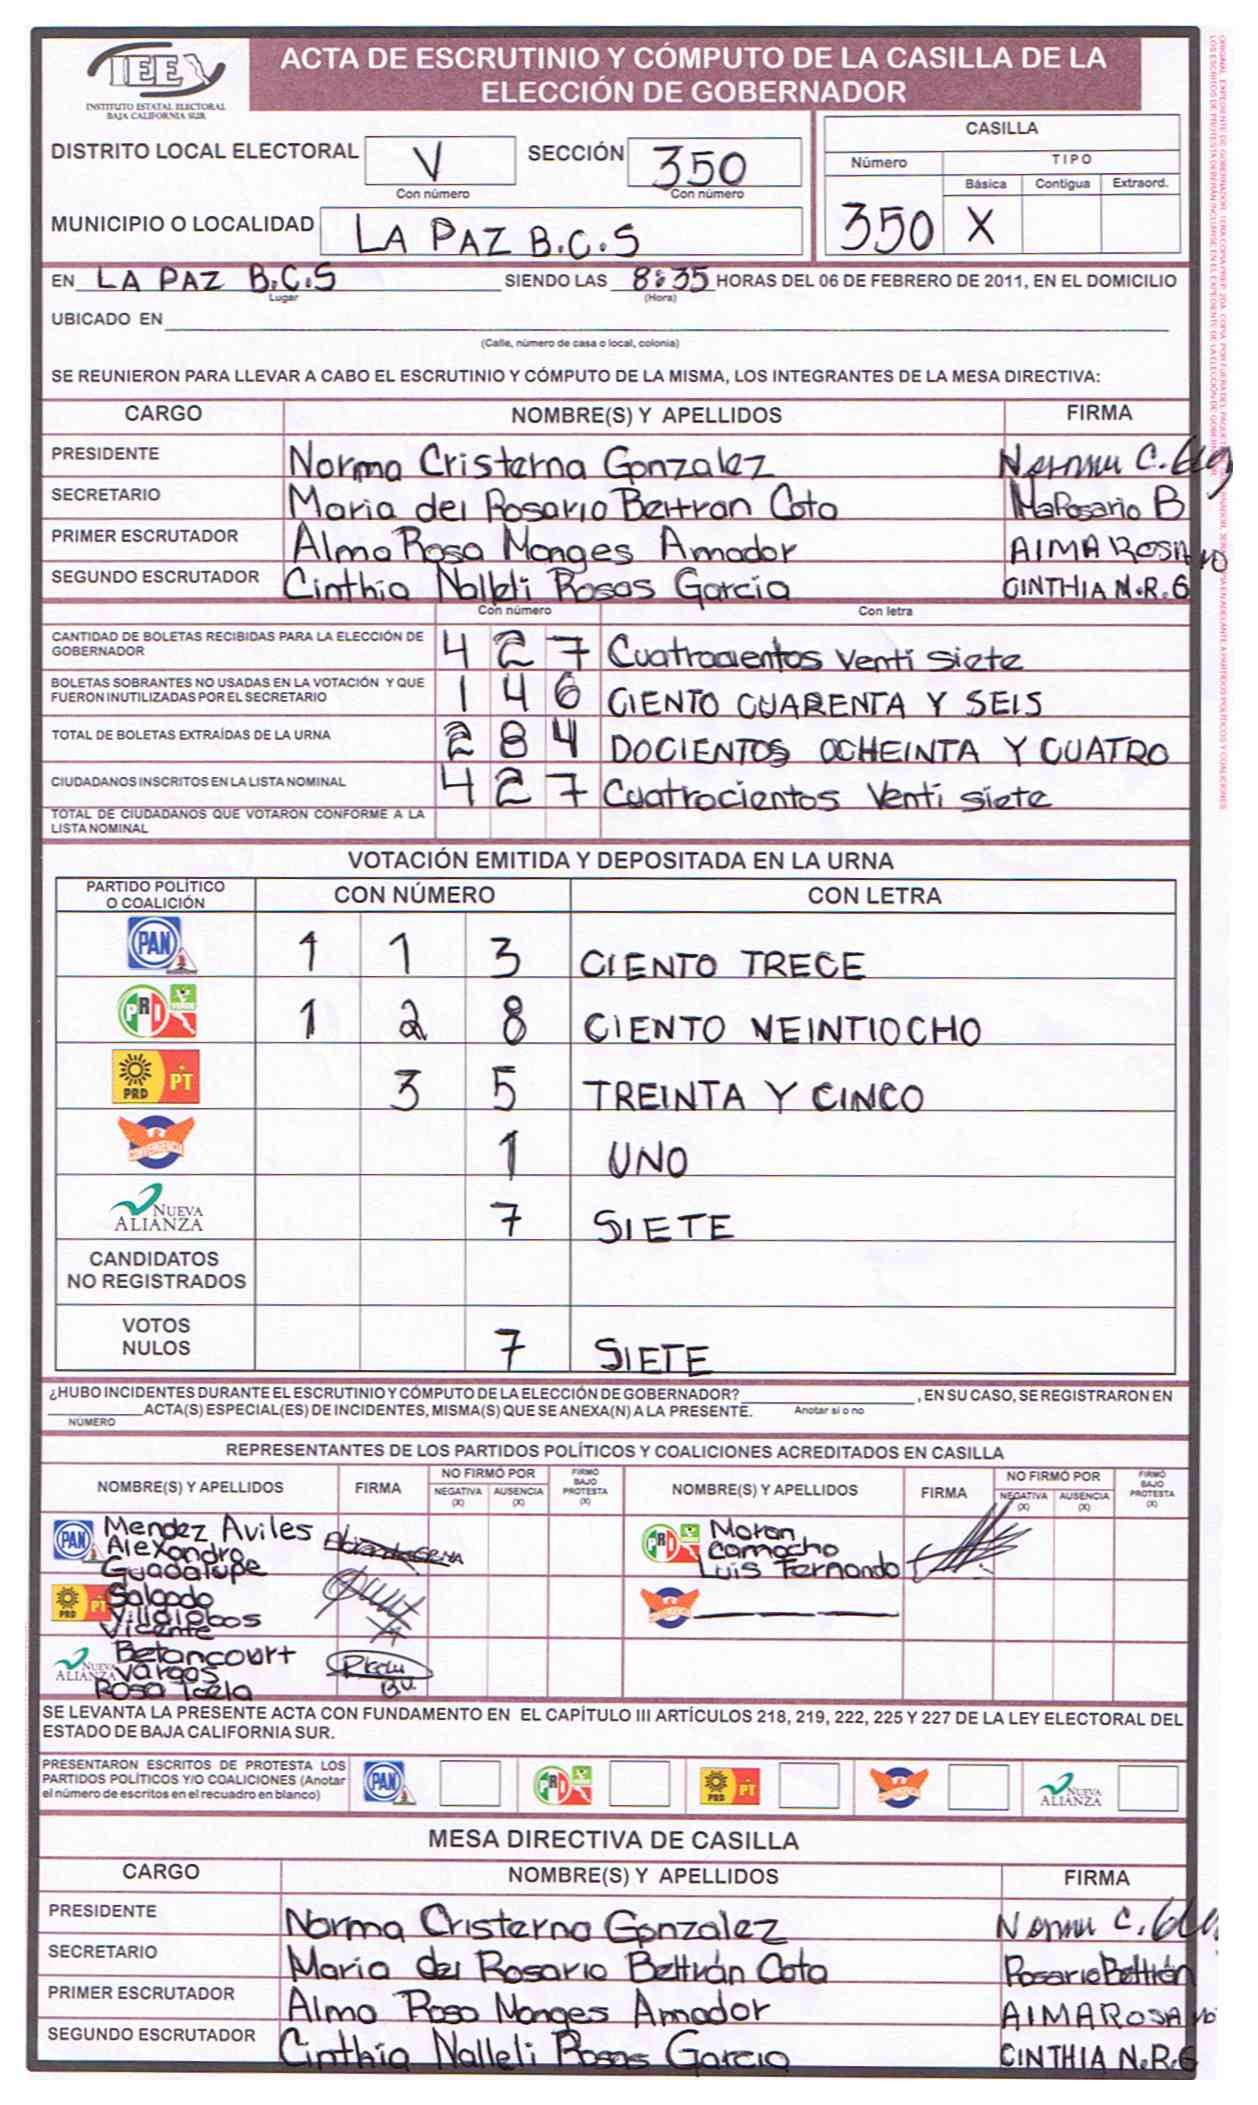 IEE
INSTITUTO ESTATAL ELECTORAL
BAJA CALIFORNIA SUR
ACTA DE ESCRUTINIO Y CÓMPUTO DE LA CASILLA DE LA
ELECCIÓN DE GOBERNADOR
DISTRITO LOCAL ELECTORAL V SECCIÓN 350
Con número Con número
MUNICIPIO O LOCALIDAD LA PAZ B.C.S
CASILLA
Número TIPO
Básica Contigua Extraord.
350 X
EN LA PAZ B.C.S SIENDO LAS 8:35 HORAS DEL 06 DE FEBRERO DE 2011, EN EL DOMICILIO
Lugar (Hora)
UBICADO EN
(Calle, número de casa o local, colonia)
SE REUNIERON PARA LLEVAR A CABO EL ESCRUTINIO Y CÓMPUTO DE LA MISMA, LOS INTEGRANTES DE LA MESA DIRECTIVA:
CARGO NOMBRE(S) Y APELLIDOS FIRMA
PRESIDENTE Norma Cristerna Gonzalez
SECRETARIO Maria del Rosario Beltran Cota MaRosario B
PRIMER ESCRUTADOR Alma Rosa Monges Amador
SEGUNDO ESCRUTADOR Cinthia Nalleli Rosas Garcia CINTHIA N.R.G
Con número Con letra
CANTIDAD DE BOLETAS RECIBIDAS PARA LA ELECCIÓN DE
GOBERNADOR 4 2 7 Cuatrocientos Venti siete
BOLETAS SOBRANTES NO USADAS EN LA VOTACIÓN Y QUE
FUERON INUTILIZADAS POR EL SECRETARIO 1 4 6 CIENTO CUARENTA Y SEIS
TOTAL DE BOLETAS EXTRAÍDAS DE LA URNA 2 8 4 DOCIENTOS OCHEINTA Y CUATRO
CIUDADANOS INSCRITOS EN LA LISTA NOMINAL 4 2 7 Cuatrocientos Venti siete
TOTAL DE CIUDADANOS QUE VOTARON CONFORME A LA
LISTA NOMINAL
VOTACIÓN EMITIDA Y DEPOSITADA EN LA URNA
PARTIDO POLÍTICO
O COALICIÓN CON NÚMERO CON LETRA
PAN 1 1 3 CIENTO TRECE
PRI VERDE 1 2 8 CIENTO VEINTIOCHO
PRD PT 3 5 TREINTA Y CINCO
CONVERGENCIA 1 UNO
NUEVA ALIANZA 7 SIETE
CANDIDATOS
NO REGISTRADOS
VOTOS
NULOS 7 SIETE
¿HUBO INCIDENTES DURANTE EL ESCRUTINIO Y CÓMPUTO DE LA ELECCIÓN DE GOBERNADOR? , EN SU CASO, SE REGISTRARON EN
ACTA(S) ESPECIAL(ES) DE INCIDENTES, MISMA(S) QUE SE ANEXA(N) A LA PRESENTE. Anotar si o no
NÚMERO
REPRESENTANTES DE LOS PARTIDOS POLÍTICOS Y COALICIONES ACREDITADOS EN CASILLA
NOMBRE(S) Y APELLIDOS FIRMA NO FIRMÓ POR NEGATIVA (X) AUSENCIA (X) FIRMÓ BAJO PROTESTA (X) NOMBRE(S) Y APELLIDOS FIRMA NO FIRMÓ POR NEGATIVA (X) AUSENCIA (X) FIRMÓ BAJO PROTESTA (X)
PAN Mendez Aviles
Alexandra
Guadalupe
PRI VERDE Moran
Camacho
Luis Fernando
PRD PT Salgado
Villalobos
Vicente
CONVERGENCIA
NUEVA ALIANZA Betancourt
Vargas
Rosa Icela
SE LEVANTA LA PRESENTE ACTA CON FUNDAMENTO EN EL CAPÍTULO III ARTÍCULOS 218, 219, 222, 225 Y 227 DE LA LEY ELECTORAL DEL
ESTADO DE BAJA CALIFORNIA SUR.
PRESENTARON ESCRITOS DE PROTESTA LOS
PARTIDOS POLÍTICOS Y/O COALICIONES (Anotar
el número de escritos en el recuadro en blanco) PAN PRI VERDE PRD PT CONVERGENCIA NUEVA ALIANZA
MESA DIRECTIVA DE CASILLA
CARGO NOMBRE(S) Y APELLIDOS FIRMA
PRESIDENTE Norma Cristerna Gonzalez
SECRETARIO Maria del Rosario Beltrán Cota Rosario Beltrán
PRIMER ESCRUTADOR Alma Rosa Monges Amador
SEGUNDO ESCRUTADOR Cinthia Nalleli Rosas Garcia CINTHIA N.R.G